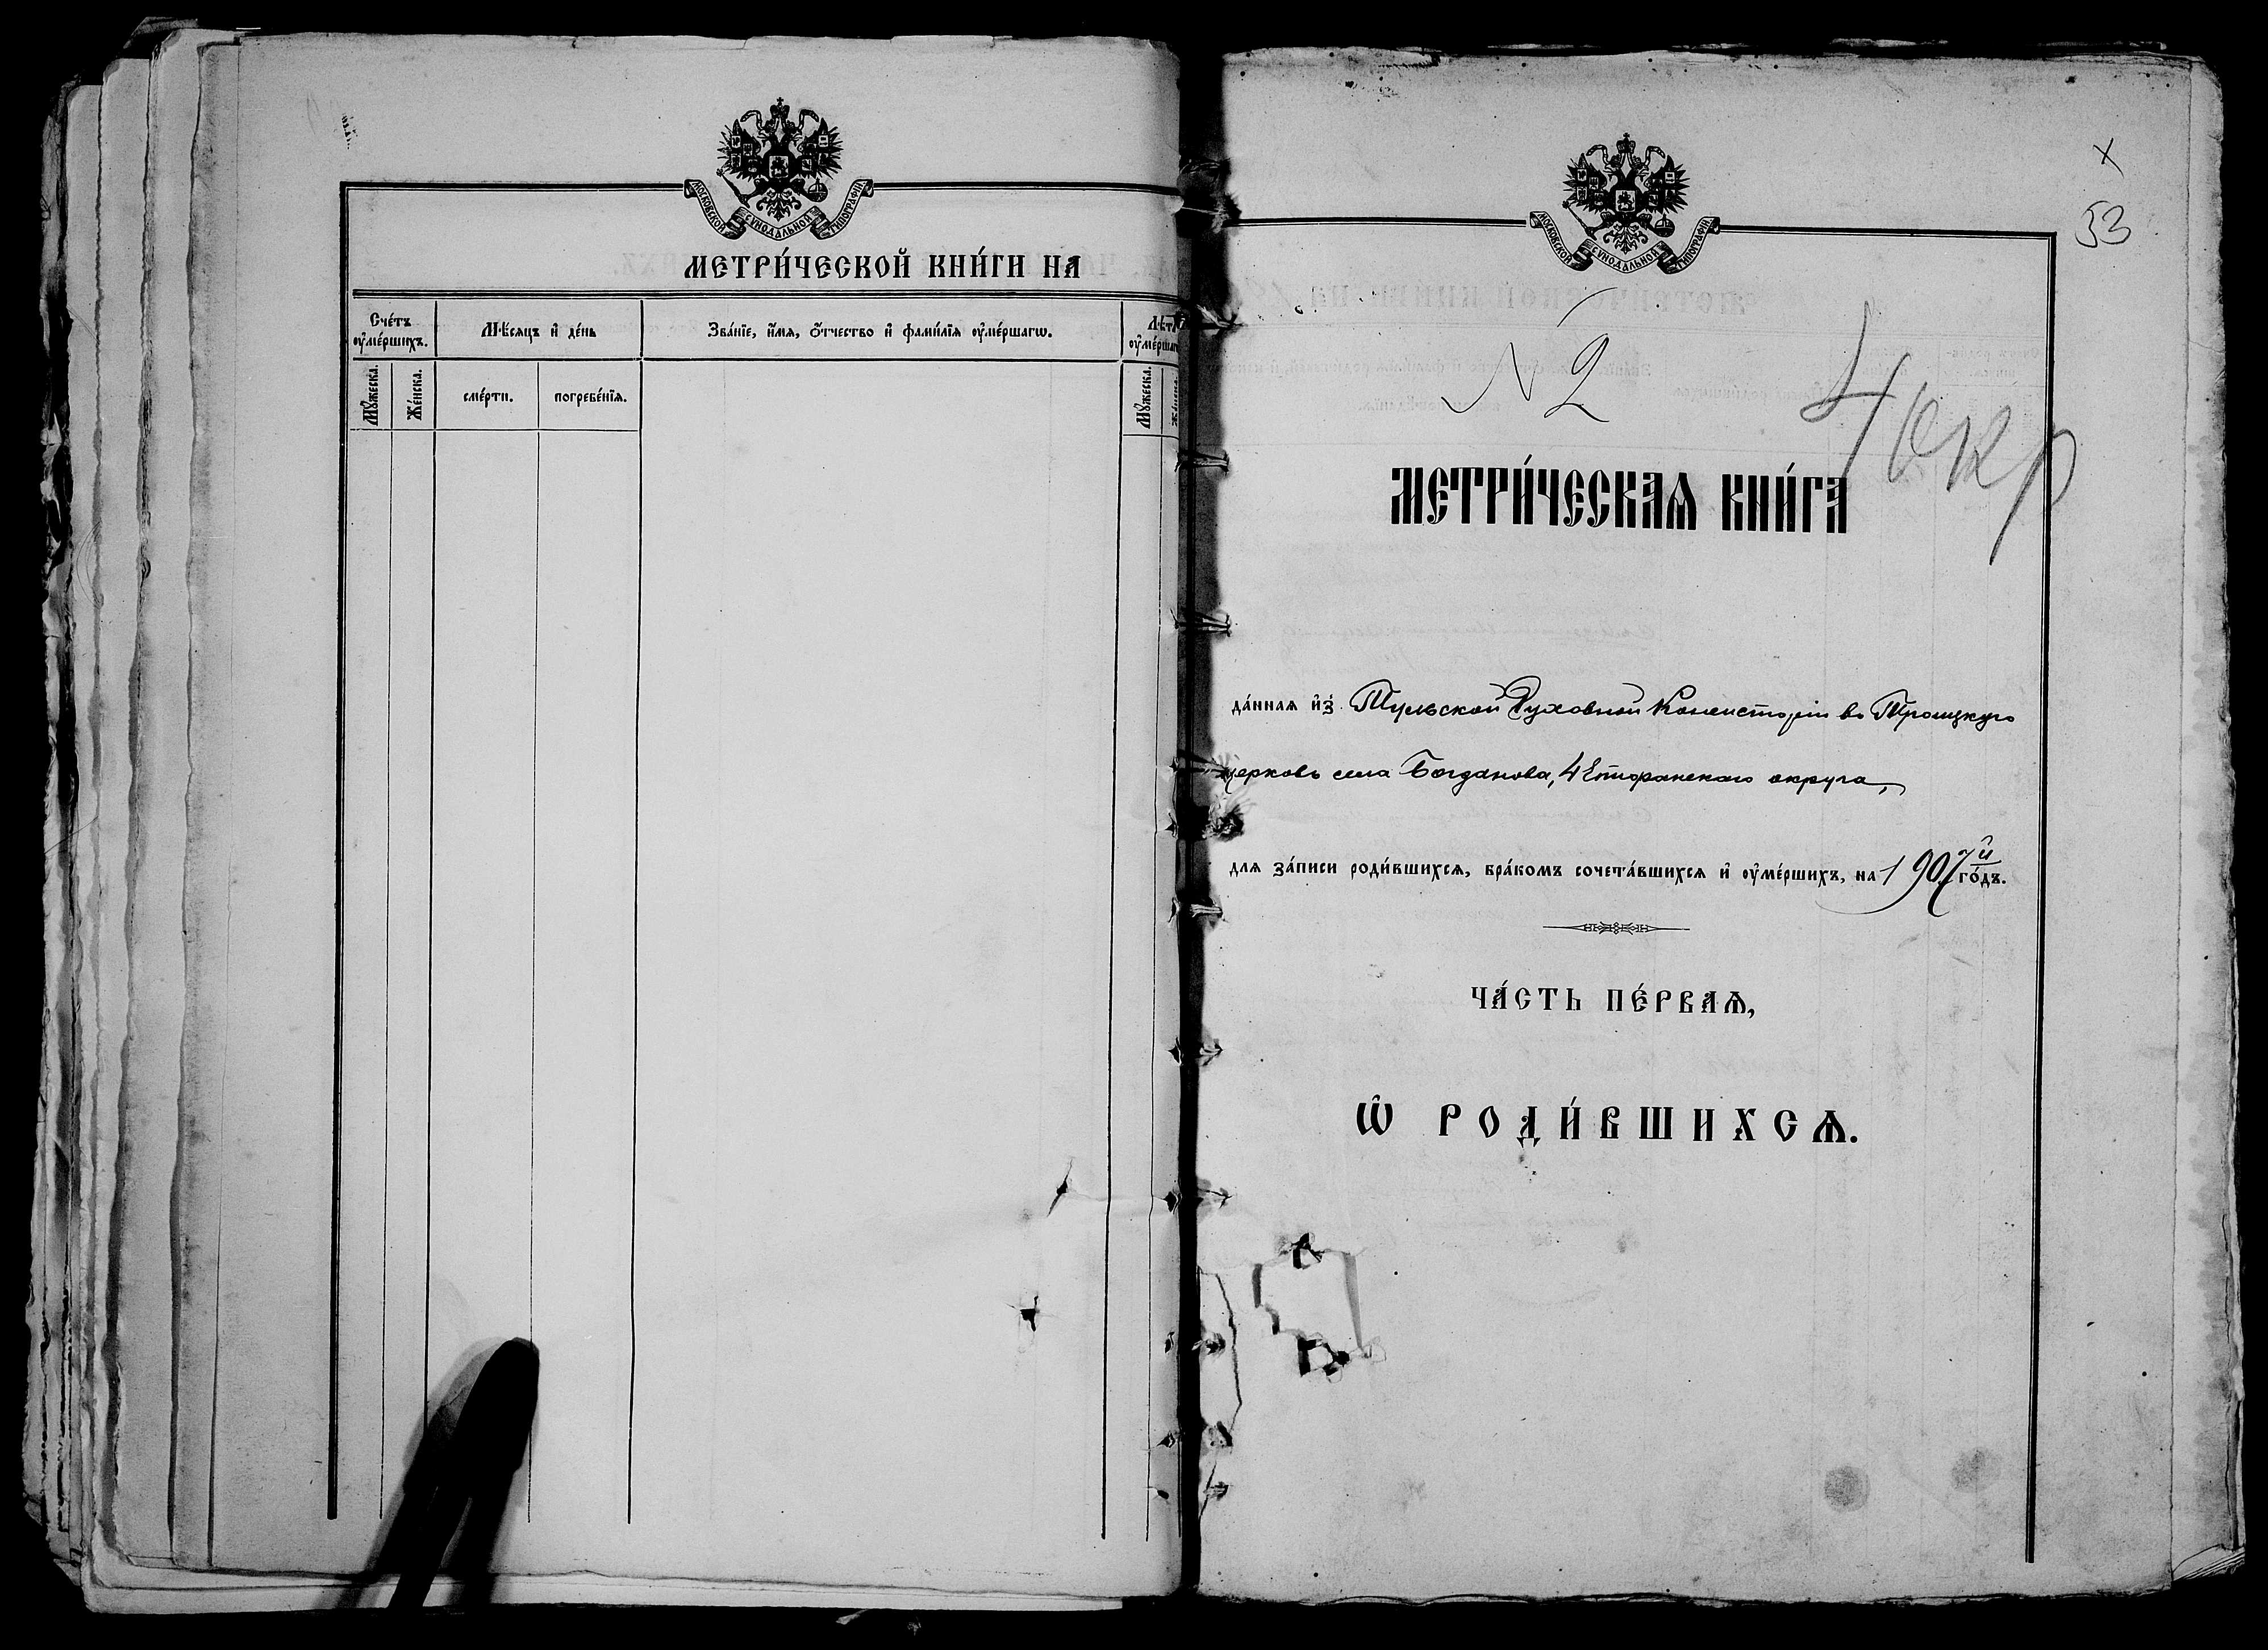 МОСКОВСКОЙ СѴНОДАЛЬНОЙ ТИПОГРАФІИ
МЕТРИ́ЧЕСКОЙ КНИ́ГИ НА
Сче́тъ ᲂу҆ме́ршихъ.
Мѣ́сяцъ и҆ де́нь
Зва́нїе, и҆́мя, ѻ҆́тчество и҆ фами́лїя ᲂу҆ме́ршагѡ.
Лѣ́та
Мꙋ́жеска.
Же́нска.
сме́рти.
погребе́нїя.
Мꙋ́жеска.
МОСКОВСКОЙ СѴНОДАЛЬНОЙ ТИПОГРАФІИ
53
N 2
4 окр
МЕТРИ́ЧЕСКАѦ КНИ́ГА
да́нная и҆з̾ Тульской Духовной Консисторіи въ Троицкую
церковь села Богданова, 4 Епифанскаго округа,
для за́писи роди́вшихсѧ, бра́комъ сочета́вшихсѧ и҆ ᲂу҆ме́ршихъ, на 1907й го́дъ.
ЧА́СТЬ ПЕ́РВАѦ,
Ѡ҆ РОДИ́ВШИХСѦ.